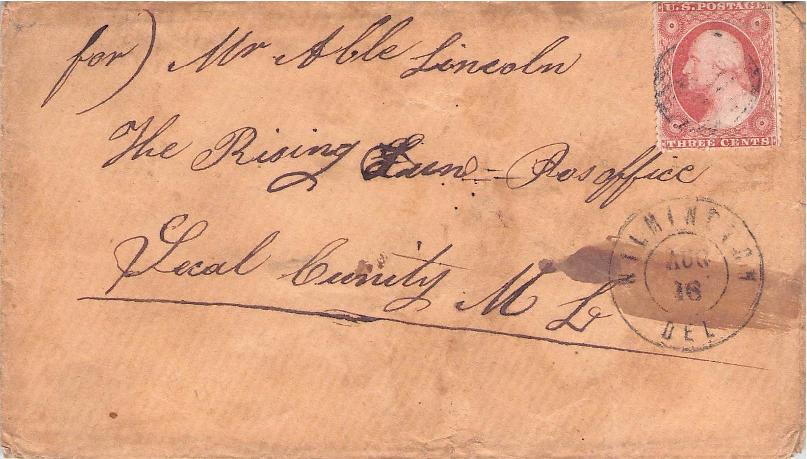 U.S. POSTAGE
THREE CENTS
for) Mr Able Lincoln
The Rising Sun - Posoffice
Secal Cunity M L
WILMINGTON
AUG
16
DEL